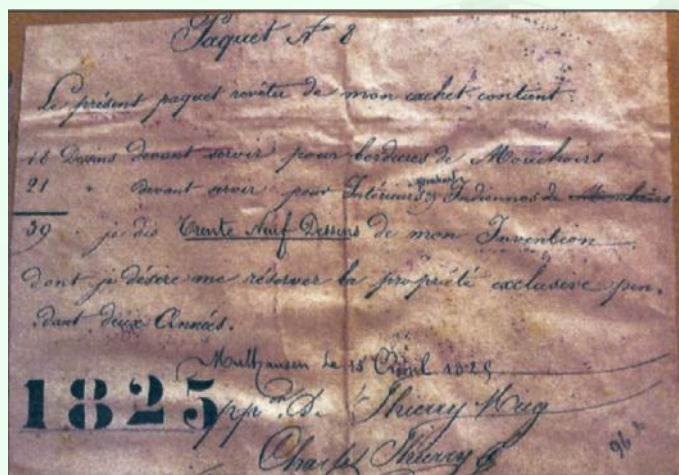 Paquet No 8
Le présent paquet revêtu de mon cachet contient
18 Dessins devant servir pour bordures de Mouchoirs
21 " devant servir pour Intérieurs Indiennes de Mouchoirs
39 je dis Trente Neuf Dessins de mon Invention
dont je désire me réserver la propriété exclusive pen-
dant deux Années.
Mulhausen le 15 Avril 1825
1825 ppon D. Thierry Mieg
Charles Thierry
96